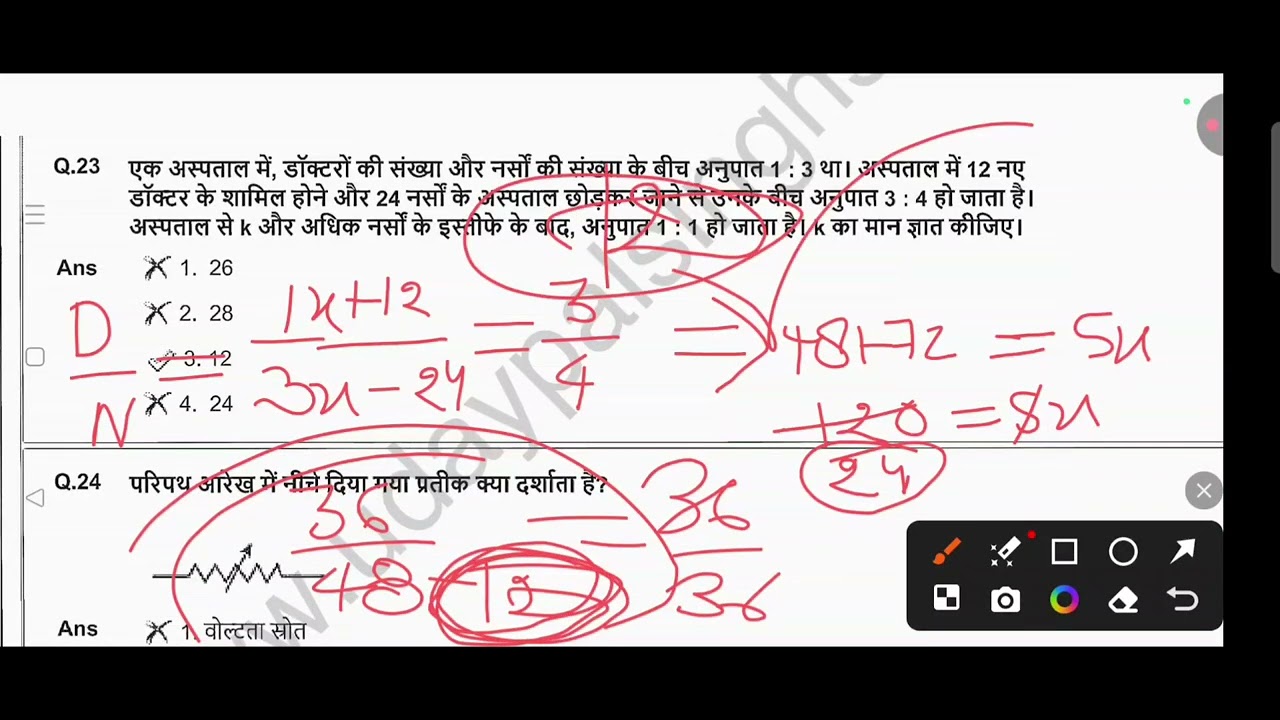 Q.23 एक अस्पताल में, डॉक्टरों की संख्या और नर्सों की संख्या के बीच अनुपात 1 : 3 था। अस्पताल में 12 नए
डॉक्टर के शामिल होने और 24 नर्सों के अस्पताल छोड़कर जाने से उनके बीच अनुपात 3 : 4 हो जाता है।
अस्पताल से k और अधिक नर्सों के इस्तीफे के बाद, अनुपात 1 : 1 हो जाता है। k का मान ज्ञात कीजिए।
Ans 1. 26
2. 28
3. 12
4. 24
D/N = (1x+12)/(3x-24) = 3/4 ⇒ 48+72 = 5x
120 = 5x
24
Q.24 परिपथ आरेख में नीचे दिया गया प्रतीक क्या दर्शाता है?
36/(48-12) = 36/36
Ans 1. वोल्टता स्रोत
www.udaypalsingh